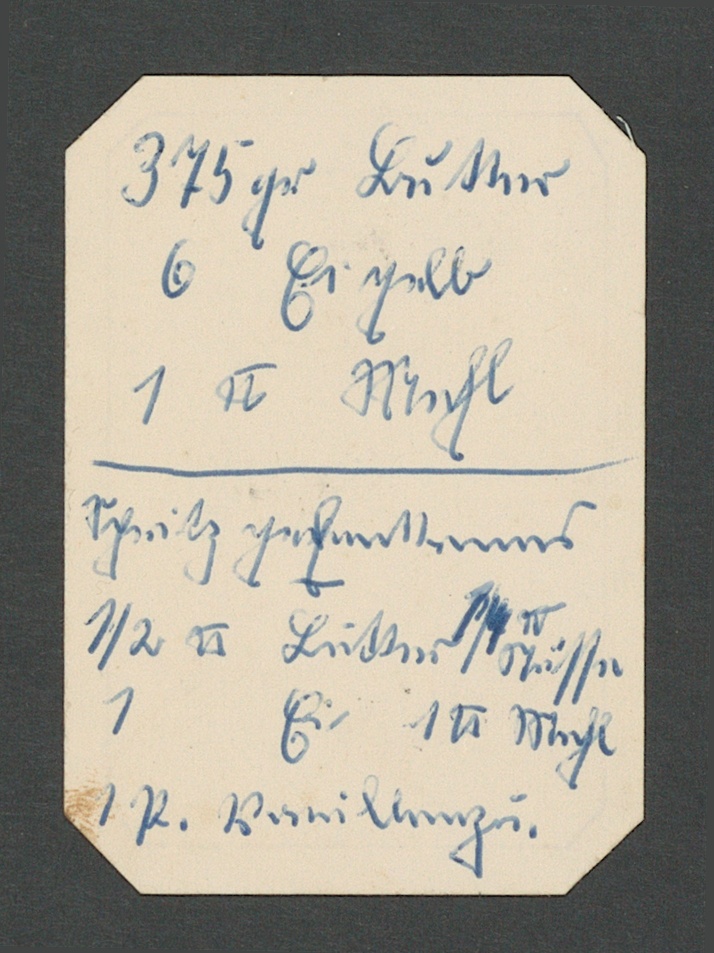 375 gr Butter
6 Eigelb
1 ℔ Mehl
Spritz
1/2 ℔ Butter 1/4 ℔ Nüsse
1 Ei 1 ℔ Mehl
1 P. Vanillenzu.